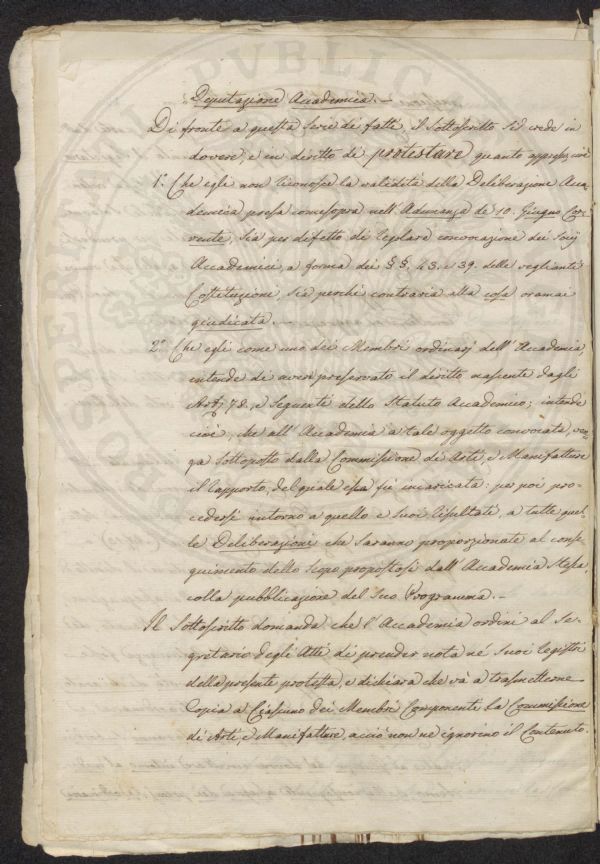 PROSPERITATI PVBLICAE
Deputazione Accademica. —
Di fronte a questa serie di fatti, il Sottoscritto si crede in
dovere, e in diritto di protestare quanto appresso, cioè
1.° Che egli non riconosce la validità della Deliberazione Acca-
demica presa come sopra nell'Adunanza de 10. Giugno Cor-
rente, sia per difetto di regolare convocazione dei Socij
Accademici a forma dei §. §. 43. e 39. delle veglianti
Costituzioni, sia perché contraria alla cosa oramai
giudicata. —
2.° Che egli come uno dei Membri ordinarj dell'Accademia,
intende di aver preservato il diritto nascente dagli
Artj 78. e Seguenti dello Statuto Accademico; intende
cioè, che all'Accademia a tale oggetto convocata, ven-
ga sottoposto dalla Commissione di Arti, e Manifatture
il rapporto, del quale essa fu incaricata: per poi pro-
cedersi intorno a quello e suoi risultati, a tutte quel-
le Deliberazioni che saranno proporzionate al conse-
guimento dello Scopo propostosi dall'Accademia Stessa,
colla pubblicazione del suo Programma. —
Il Sottoscritto domanda che l'Accademia ordini al Se-
gretario degli Atti di prender nota né suoi registri
della presente protesta, e dichiara che và a trasmetterne
Copia a Ciascuno dei Membri Componenti la Commissione
di Arti, e Manifatture acciò non ne ignorino il Contenuto.